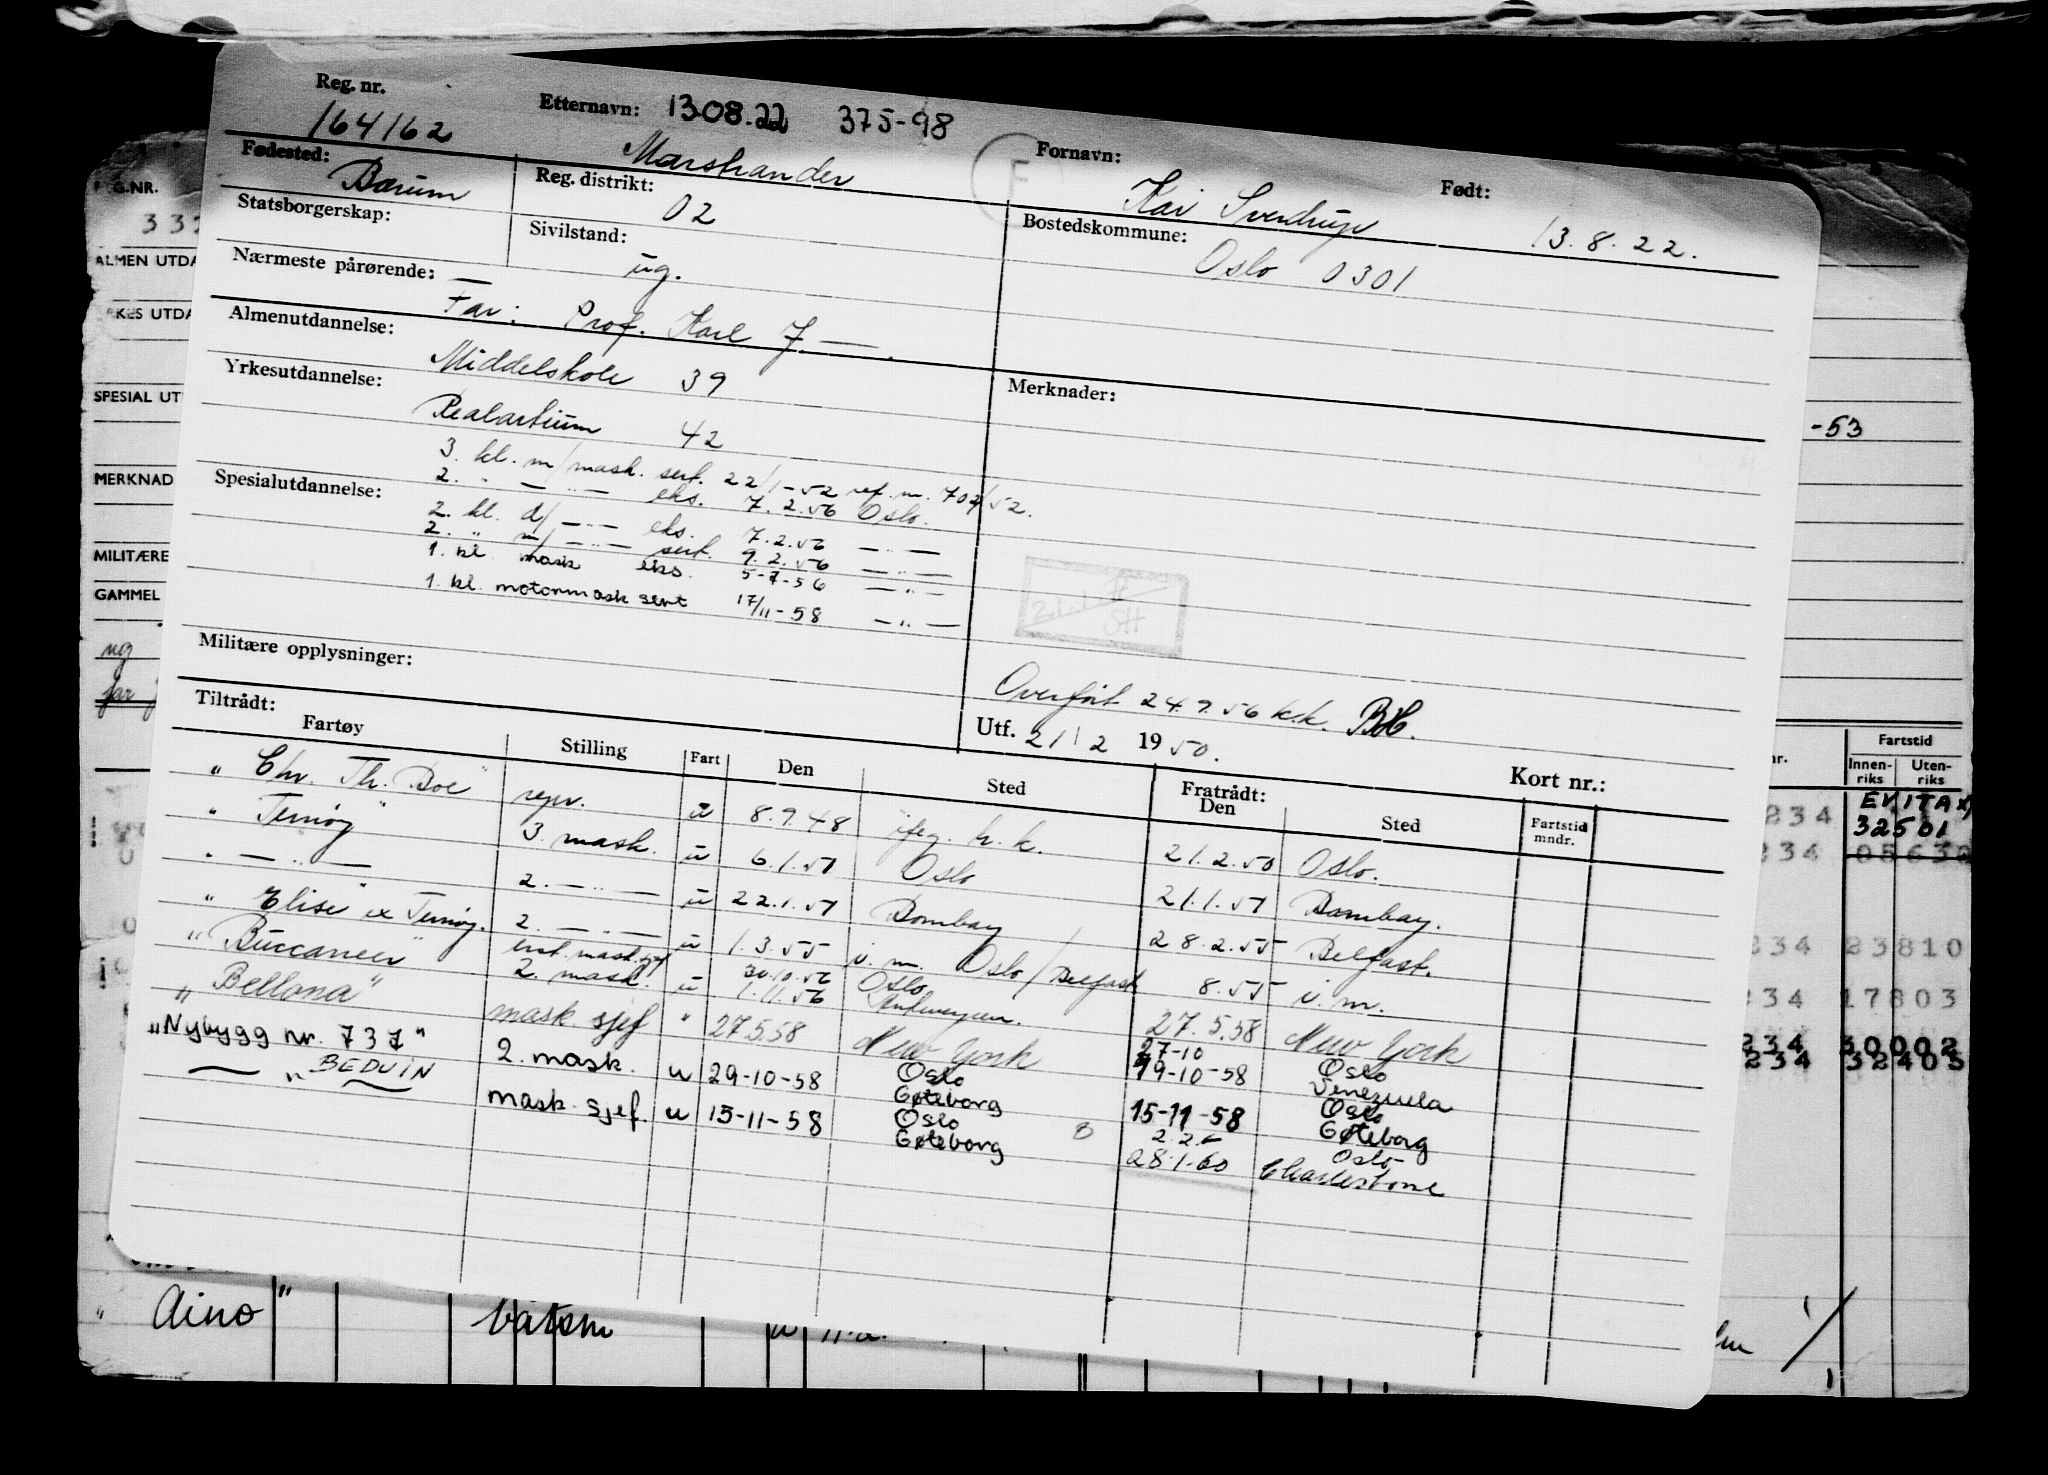 Reg. nr. Etternavn: 13.08.22 375-98 Fornavn: Født:
164162 Marstrander F Kai Sverdrup 13.8.22.
Fødested: Bærum Reg. distrikt: 02 Bostedskommune: Oslo 0301
Statsborgerskap: Sivilstand: ug.
Nærmeste pårørende: Far: Prof. Karl J. — .
Almenutdannelse: Middelskole 39 Merknader:
Yrkesutdannelse: Realartium 42
3. kl. m/mask. sert. 22/1-52 ref. nr. 702/52.
Spesialutdannelse: 2. " — " — eks. 7.2.56 Oslo.
2. kl. d/ — " — eks. 7.2.56 — " —
2. " m/ — " — sert. 9.2.56 — " —
1. kl. mask eks. 5-7-56 — " —
1. kl. motormask sert 17/11-58 — " —
21.1.
SH
Militære opplysninger:
Overført 24.9.56 k.k. BH.
Tiltrådt: Utf. 21/2 1950. Kort nr.:
Fartøy Stilling Fart Den Sted Fratrådt: Den Sted Fartstid mndr.
" Chr. Th. Boe" repr. u 8.9.48 ifeg. h.k. 21.2.50 Oslo.
" Ternøy" 3. mask. u 6.1.51 Oslo 21.1.51 Bombay.
" — " — 2. — " — u 22.1.51 Bombay 28.2.55 Belfast.
" Elise" ex Ternøy. 2. — " — u 1.3.55 i.m. Oslo/Belfast 8.55 i.m.
"Buccaneer" 2. mask. u 30.10.56 1.11.56 Oslo Antwerpen. 27.5.58 New York
"Bellona" mask. sjef " 27.5.58 New York 27-10 19-10-58 Oslo Venezuela
"Nybygg nr. 737" 2. mask. u 29-10-58 Oslo Gøteborg 15-11-58 Oslo Gøteborg
— " — BEDUIN mask. sjef. u 15-11-58 Oslo Gøteborg 28.1.60 Oslo Charlestone
REG.NR.
ALMEN UTDA
SPESIAL UT
MERKNAD
MILITÆRE
GAMMEL
ug
far
-53
Fartstid
Innenriks Utenriks
EVITA
234 32501
234 05630
234 23810
234 17803
234 30002
234 32405
" Aino" båtsm u